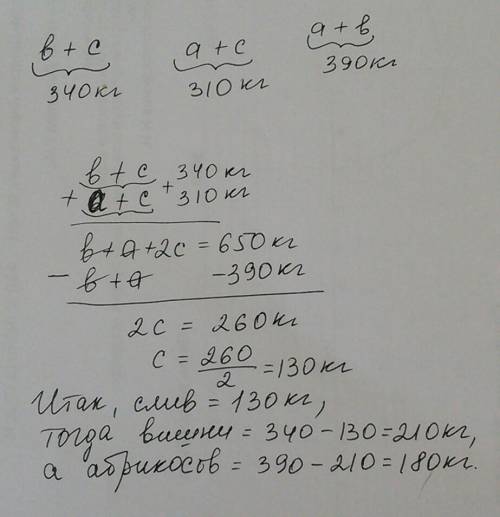 в + с   а + с   а + в
340кг   310 кг   390кг
в + с + 340 кг
+ а + с   310 кг
в + а + 2с = 650кг
− в + а   −390кг
2с = 260кг
с = 260/2 = 130кг
Итак, слив = 130кг,
тогда вишни = 340 − 130 = 210кг,
а абрикосов = 390 − 210 = 180кг.